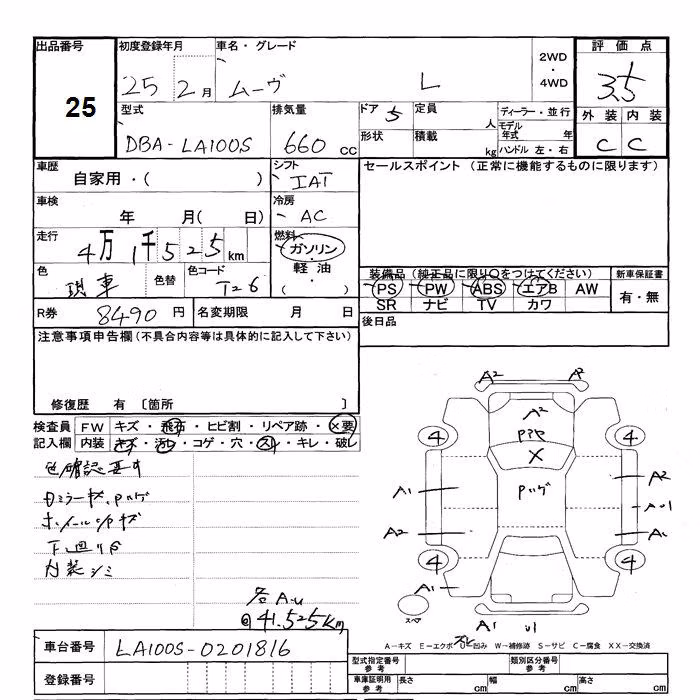 出品番号
25
初度登録年月
25 2月
車名・グレード
ムーヴ L
2WD
・
4WD
評価点
3.5
外装 内装
C C
型式
DBA-LA100S
排気量
660 cc
ドア 5
形状
定員 人
積載 kg
ディーラー・並行
モデル年式 年
ハンドル 左・右
車歴
自家用・( )
シフト
IAT
セールスポイント (正常に機能するものに限ります)
車検
年 月( 日)
冷房
AC
走行
4万1千525km
燃料
ガソリン・
軽油・
( )
色
現車
色替
色コード
T26
装備品 (純正品に限り○をつけてください)
PS PW ABS エアB AW
SR ナビ TV カワ
新車保証書
有・無
R券 8490円
名変期限 月 日
後日品
注意事項申告欄(不具合内容等は具体的に記入して下さい)
修復歴 有 〔箇所 〕
検査員 FW キズ・飛石・ヒビ割・リペア跡・×要
記入欄 内装 キズ・汚レ・コゲ・穴・スレ・キレ・破レ
色確認要す
下廻りサビ
内装シミ
各A.U
@41.525km
A2 A2
A2
4 4
X
Pハゲ
A1 A2
A2 A1
4 4
A1
スペア
A1 U1
A-キズ E-エクボ U-凹み W-補修跡 S-サビ C-腐食 XX-交換済
車台番号 LA100S-0201816
登録番号
型式指定番号
参考
類別区分番号
参考
車庫証明用
参考
長さ cm 幅 cm 高さ cm